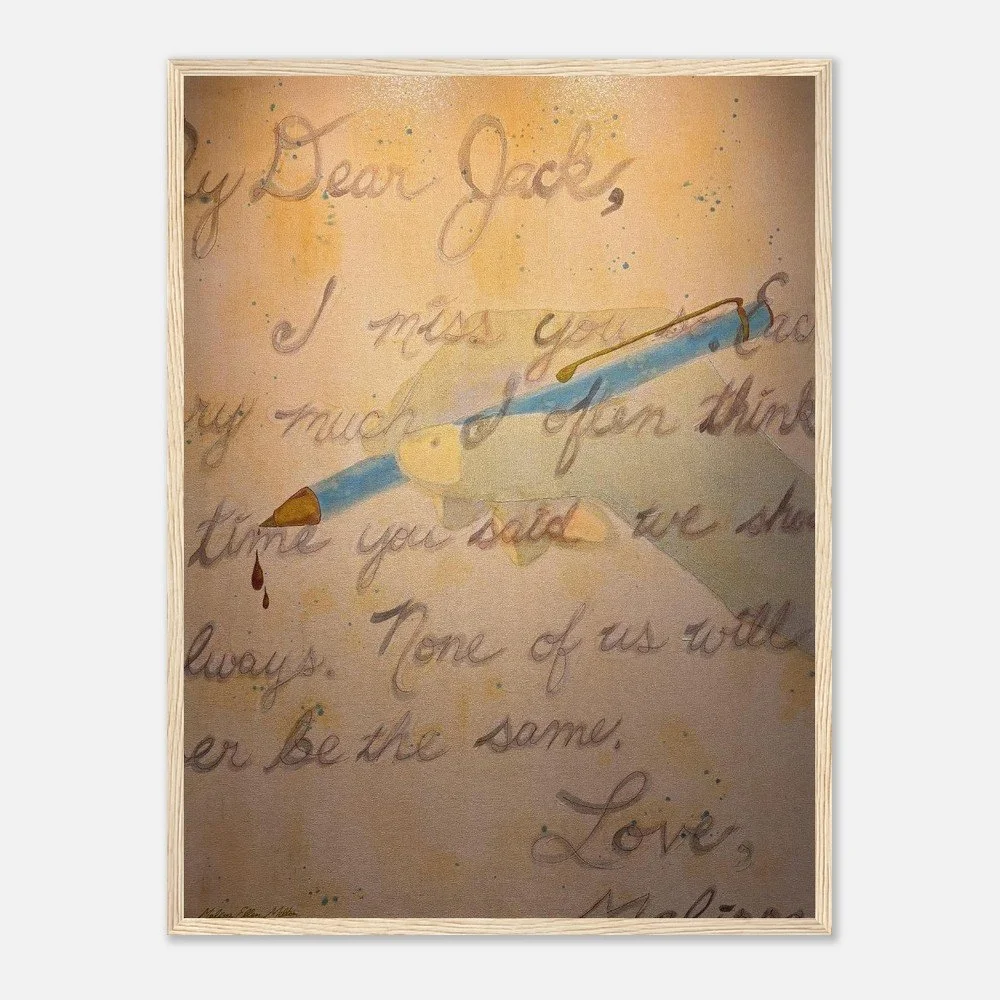 y Dear Jack,
I miss you so. Eac
ry much I often think
time you said we sho
lways. None of us will
er be the same.
Love,
Melissa
Melissa Ellen Miller